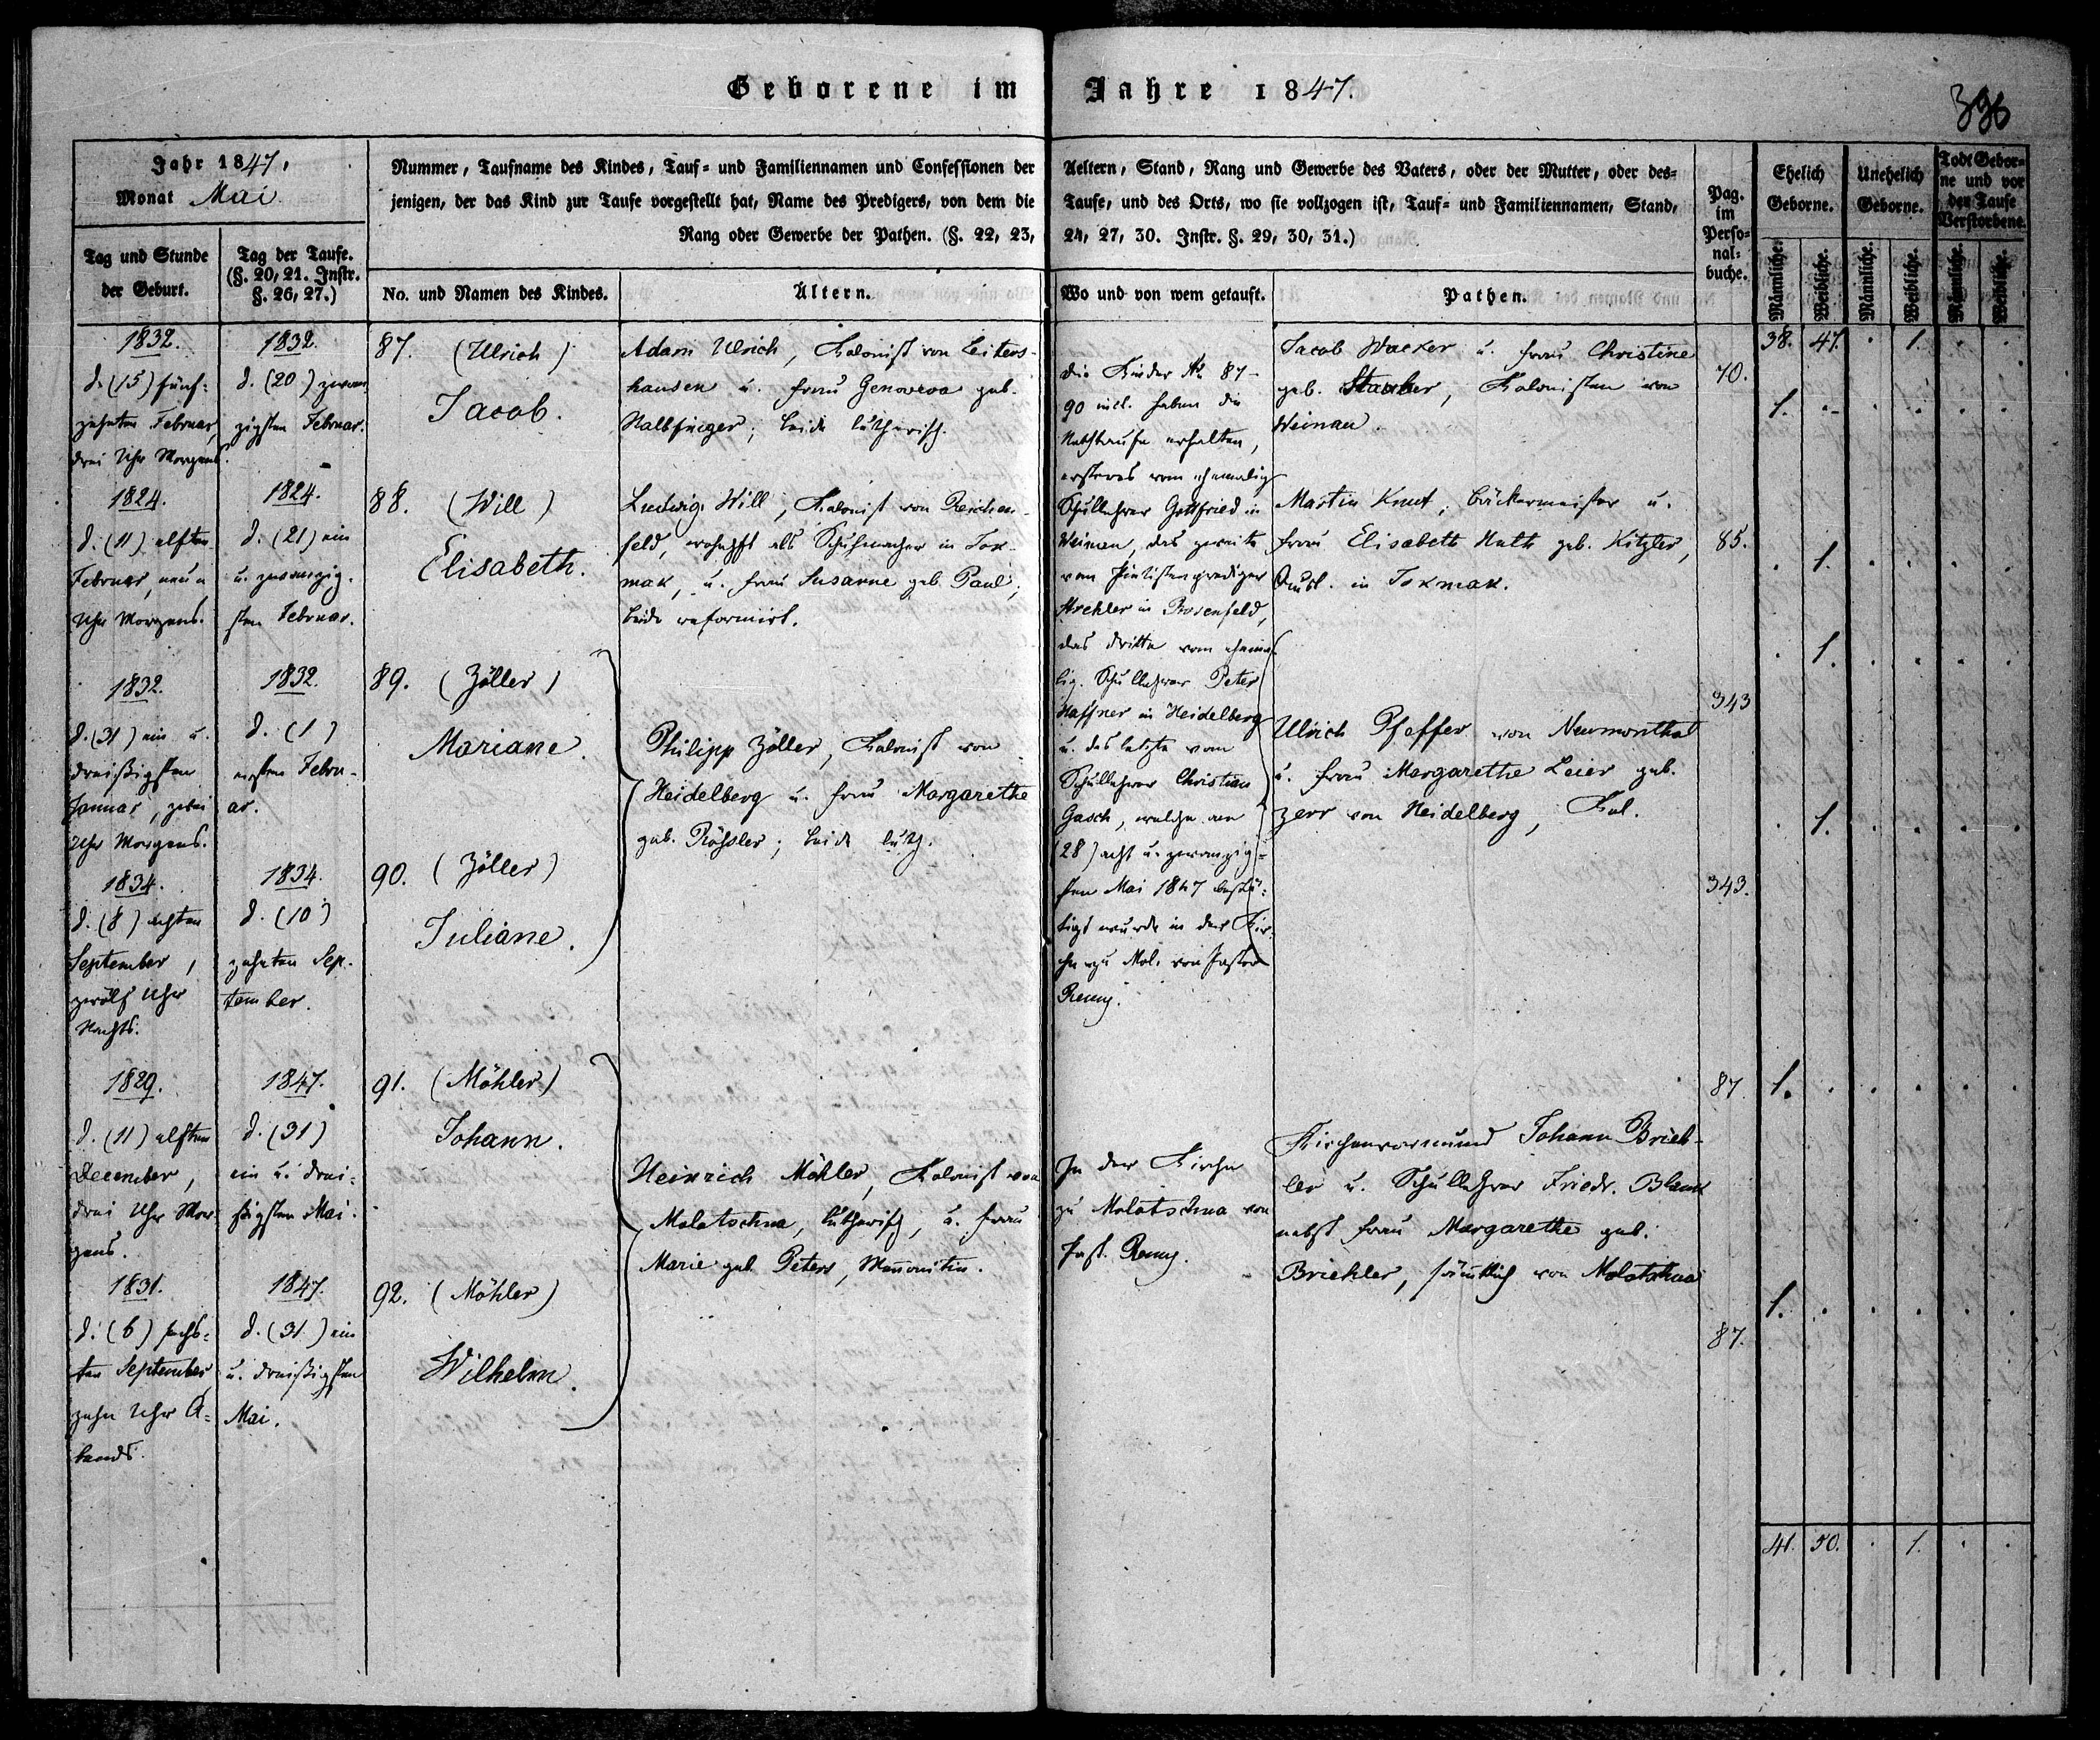 Geborene im Jahre 1847.
396
Jahr 1847.
Monat Mai.
Nummer, Taufname des Kindes, Tauf- und Familiennamen und Confessionen der Aeltern, Stand, Rang und Gewerbe des Vaters, oder der Mutter, oder des-
jenigen, der das Kind zur Taufe vorgestellt hat, Name des Predigers, von dem die Taufe, und des Orts, wo sie vollzogen ist, Tauf- und Familiennamen, Stand,
Rang oder Gewerbe der Pathen. (§. 22, 23, 24, 27, 30. Instr. §. 29, 30, 31.)
Pag.
im
Perso-
nal-
buche.
Ehelich
Geborne.
Unehelich
Geborne.
Todt Gebor-
ne und vor
der Taufe
Verstorbene.
Tag und Stunde
der Geburt.
Tag der Taufe.
(§. 20, 21. Instr.
§. 26, 27.)
No. und Namen des Kindes.
Ältern.
Wo und von wem getauft.
Pathen.
Männliche.
Weibliche.
Männliche.
Weibliche.
Männliche.
Weibliche.
38. 47. . 1. . .
1832.
d. (15) fünf-
zehnten Februar,
drei Uhr Morgens.
1832.
d. (20) zwan-
zigsten Februar.
87. (Ulrich)
Jacob.
Adam Ulrich, Kolonist von Leiters-
hausen u. Frau Genoveva geb.
Halbfinger; beide lutherisch.
Die Kinder No 87-
90 incl. haben die
Nothtaufe erhalten,
ersteres vom ehemalig
Schullehrer Gottfried in
Weinau, das zweite
vom Pietistenprediger
in Rosenfeld,
das dritte vom ehema-
lig. Schullehrer Peter
Haffner in Heidelberg
u. das letzte vom
Schullehrer Christian
Gasch, welche am
(28) acht u. zwanzig-
sten Mai 1847 bestä-
tigt wurde in der Kir-
che zu Mol. von Pastor
Remy.
Jacob Wacker u. Frau Christine
geb. Stauber, Kolonisten von
Weinau.
70.
1. . . . . .
1824.
d. (11) elften
Februar, neun
Uhr Morgens.
1824.
d. (21) ein
u. zwanzig-
sten Februar.
88. (Will)
Elisabeth.
Ludwig Will, Kolonist von Reichen-
feld, wohnhft als Schuhmacher in Tok-
mak, u. Frau Susanne geb. Paul;
beide reformirt.
Martin Knut, Bäckermeister u.
Frau Elisabeth Huth geb. Kitzler,
in Tokmak.
85.
. 1. . . . .
1832.
d. (31) ein u.
dreißigsten
Januar, zwei
Uhr Morgens.
1832.
d. (1)
ersten Febru-
ar.
89. (Zöller)
Mariane.
Philipp Zöller, Kolonist von
Heidelberg u. Frau Margarethe
geb. Rößler; beide luth.
Ulrich Pfeffer von Neumonthal
u. Frau Margarethe Leier geb.
Zerr von Heidelberg, Kol.
343
. 1. . . . .
1834.
d. (8) achten
September,
zwölf Uhr
Nachts.
1834.
d. (10)
zehnten Sep-
tember.
90. (Zöller)
Juliane.
343.
. 1. . . . .
1829.
d. (11) elften
December,
drei Uhr Mor-
gens.
1847.
d. (31)
ein u. drei-
ßigsten Mai.
91. (Möhler)
Johann.
Heinrich Möhler, Kolonist von
Molotschna, lutherisch, u. Frau
Marie geb. Peters, Menonitin.
In der Kirche
zu Molotschna von
Past. Remy.
Kirchenvormund Johann Brieh-
ler u. Schullehrer Friedr. Blank
nebst Frau Margarethe geb.
Briehler, sämtlich von Molotschna
87
1. . . . . .
1831.
d. (6) sechs-
ten September
zehn Uhr A-
bends.
1847.
d. (31) ein
u. dreißigsten
Mai.
92. (Möhler)
Wilhelm.
87.
1. . . . . .
41. 50. . 1. . .